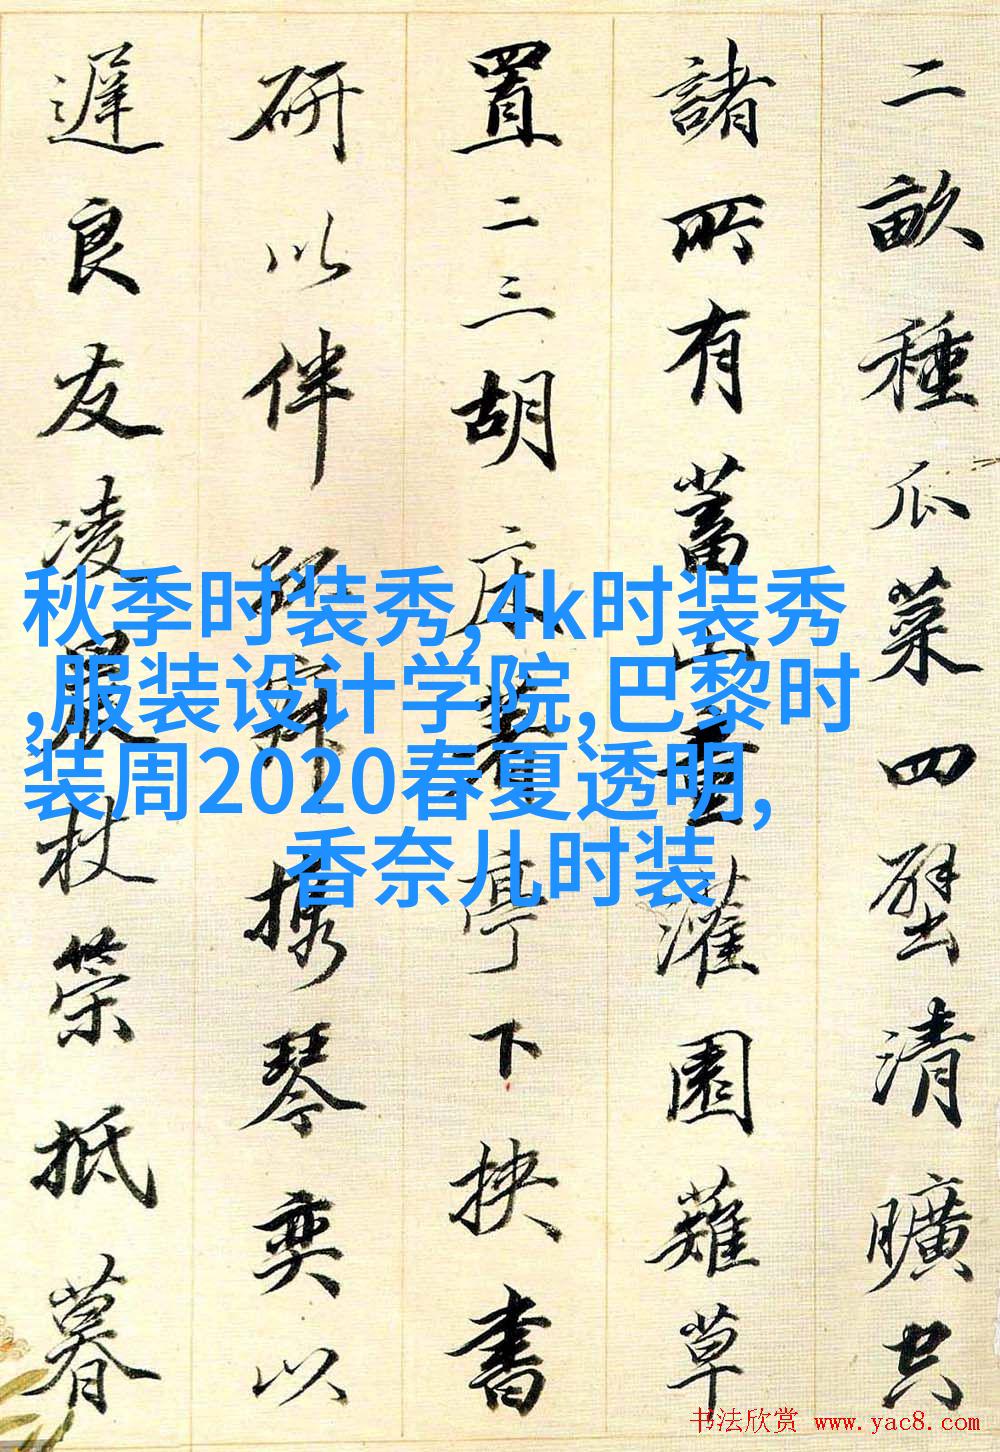 二畝種瓜菜四壁清曠空
諸所有蓄山童灌園薙草
置二三胡床著亭下挾書
研以伴孤寂攜琴奕以
遲良友凌晨杖策抵暮
秋季时装秀,4k时装秀
,服装设计学院,巴黎时
装周2020春夏透明,
香奈儿时装
书法欣赏 www.yac8.com